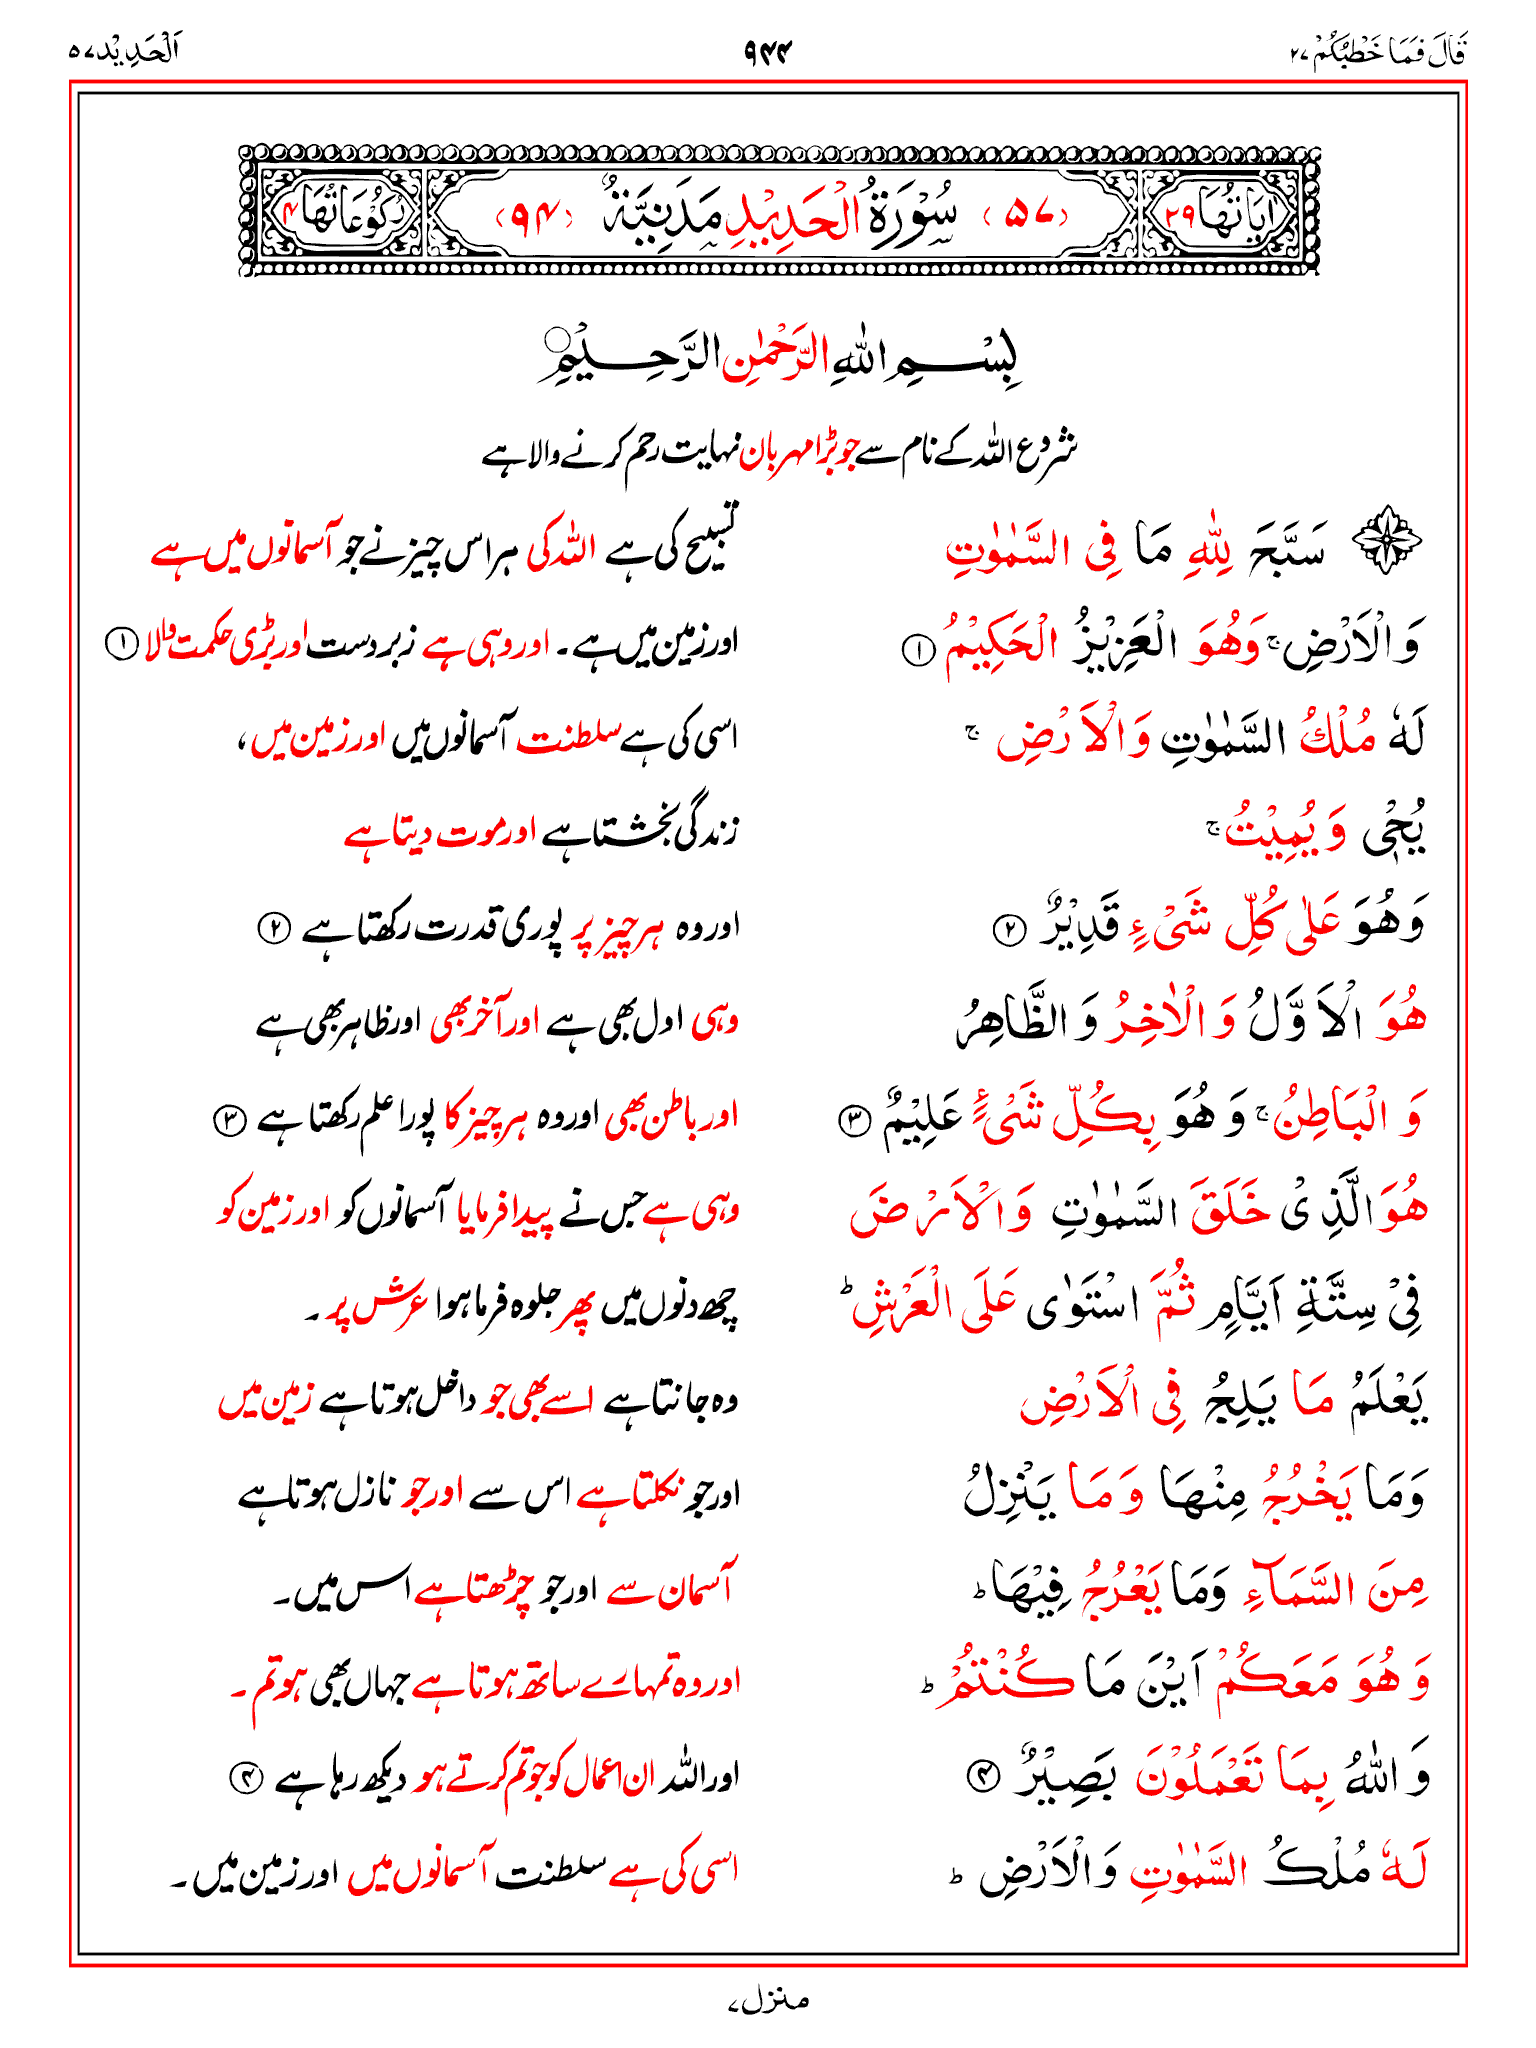 قَالَ فَمَا خَطْبُكُمْ ٢٧ ۹۴۴ اَلْحَدِيْد ٥٧
اٰيَاتُهَا ٢٩ (٥٧) سُوْرَةُ الْحَدِيْدِ مَدَنِيَّةٌ (۹۴) رُكُوْعَاتُهَا ۴
بِسْمِ اللّٰهِ الرَّحْمٰنِ الرَّحِيْمِ
شروع اللہ کے نام سے جو بڑا مہربان نہایت رحم کرنے والا ہے
سَبَّحَ لِلّٰهِ مَا فِى السَّمٰوٰتِ تسبیح کی ہے اللہ کی ہر اس چیز نے جو آسمانوں میں ہے
وَالْاَرْضِ ۚ وَهُوَ الْعَزِيْزُ الْحَكِيْمُ ① اور زمین میں ہے۔ اور وہی ہے زبردست اور بڑی حکمت والا ①
لَهٗ مُلْكُ السَّمٰوٰتِ وَالْاَرْضِ ۚ اسی کی ہے سلطنت آسمانوں میں اور زمین میں،
يُحْىٖ وَيُمِيْتُ ۚ زندگی بخشتا ہے اور موت دیتا ہے
وَهُوَ عَلٰى كُلِّ شَىْءٍ قَدِيْرٌ ② اور وہ ہر چیز پر پوری قدرت رکھتا ہے ②
هُوَ الْاَوَّلُ وَالْاٰخِرُ وَالظَّاهِرُ وہی اول بھی ہے اور آخر بھی اور ظاہر بھی ہے
وَالْبَاطِنُ ۚ وَهُوَ بِكُلِّ شَىْءٍ عَلِيْمٌ ③ اور باطن بھی اور وہ ہر چیز کا پورا علم رکھتا ہے ③
هُوَ الَّذِىْ خَلَقَ السَّمٰوٰتِ وَالْاَرْضَ وہی ہے جس نے پیدا فرمایا آسمانوں کو اور زمین کو
فِىْ سِتَّةِ اَيَّامٍ ثُمَّ اسْتَوٰى عَلَى الْعَرْشِ ؕ چھ دنوں میں پھر جلوہ فرما ہوا عرش پر۔
يَعْلَمُ مَا يَلِجُ فِى الْاَرْضِ وہ جانتا ہے اسے بھی جو داخل ہوتا ہے زمین میں
وَمَا يَخْرُجُ مِنْهَا وَمَا يَنْزِلُ اور جو نکلتا ہے اس سے اور جو نازل ہوتا ہے
مِنَ السَّمَآءِ وَمَا يَعْرُجُ فِيْهَا ؕ آسمان سے اور جو چڑھتا ہے اس میں۔
وَهُوَ مَعَكُمْ اَيْنَ مَا كُنْتُمْ ؕ اور وہ تمہارے ساتھ ہوتا ہے جہاں بھی ہو تم۔
وَاللّٰهُ بِمَا تَعْمَلُوْنَ بَصِيْرٌ ④ اور اللہ ان اعمال کو جو تم کرتے ہو دیکھ رہا ہے ④
لَهٗ مُلْكُ السَّمٰوٰتِ وَالْاَرْضِ ؕ اسی کی ہے سلطنت آسمانوں میں اور زمین میں۔
منزل ٧